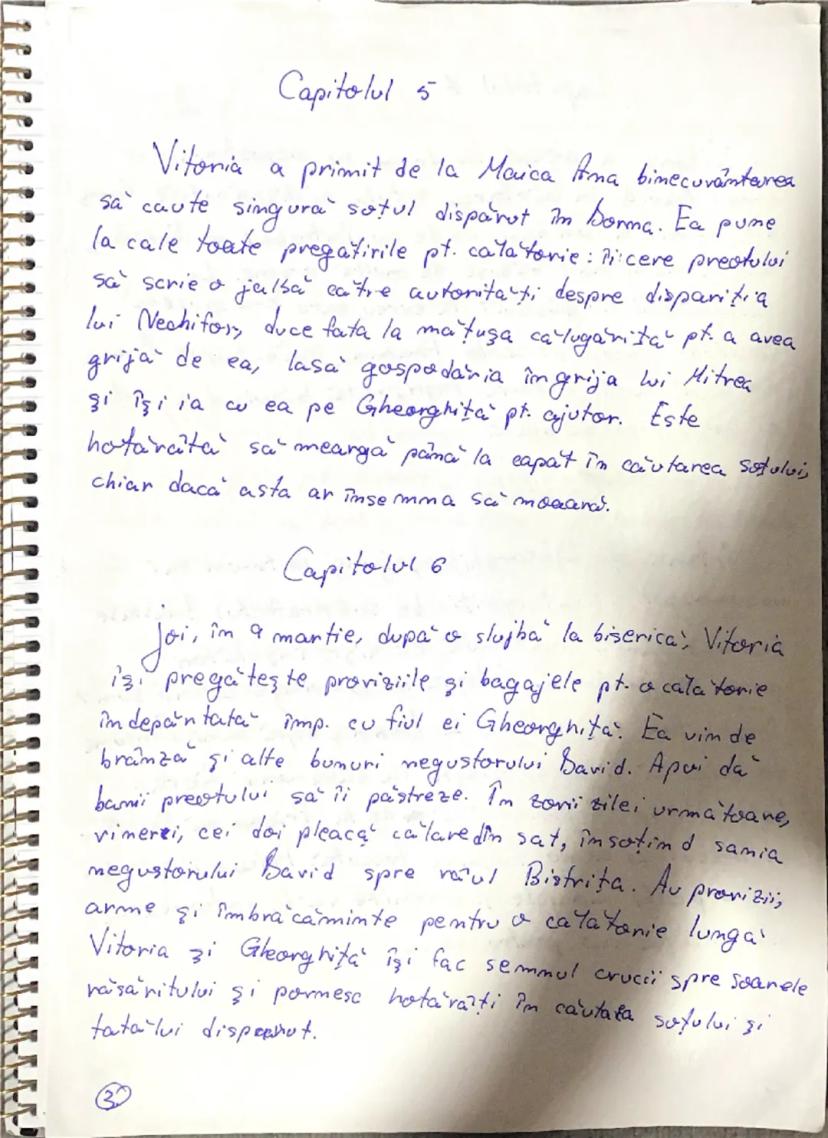 Capitolul 5
Vitoria a primit de la Maica Ana binecuvântarea
să caute singură soțul dispărut în Dorna. Ea pune
la cale toate pregatirile pt. călătorie: îi cere preotului
să scrie o jalbă către autorități despre dispariția
lui Nechifor, duce fata la mătușa călugăriță pt. a avea
grijă de ea, lasă gospodăria în grija lui Mitrea
și își ia cu ea pe Gheorghiță pt. ajutor. Este
hotărâtă să meargă până la capăt în căutarea soțului,
chiar dacă asta ar însemna să moară.
Capitolul 6
Joi, în 9 martie, după o slujbă la biserică, Vitoria
își pregătește proviziile și bagajele pt. o călătorie
îndepărtată împ. cu fiul ei Gheorghiță. Ea vinde
brânză și alte bunuri negustorului David. Apoi dă
banii preotului să îi păstreze. În zorii zilei următoare,
vineri, cei doi pleacă călare din sat, însoțind sania
negustorului David spre râul Bistrița. Au provizii,
arme și îmbrăcăminte pentru o călătorie lungă
Vitoria și Gheorghiță își fac semnul crucii spre soarele
răsăritului și pornesc hotărâți în căutarea soțului și
tatălui dispărut.
3